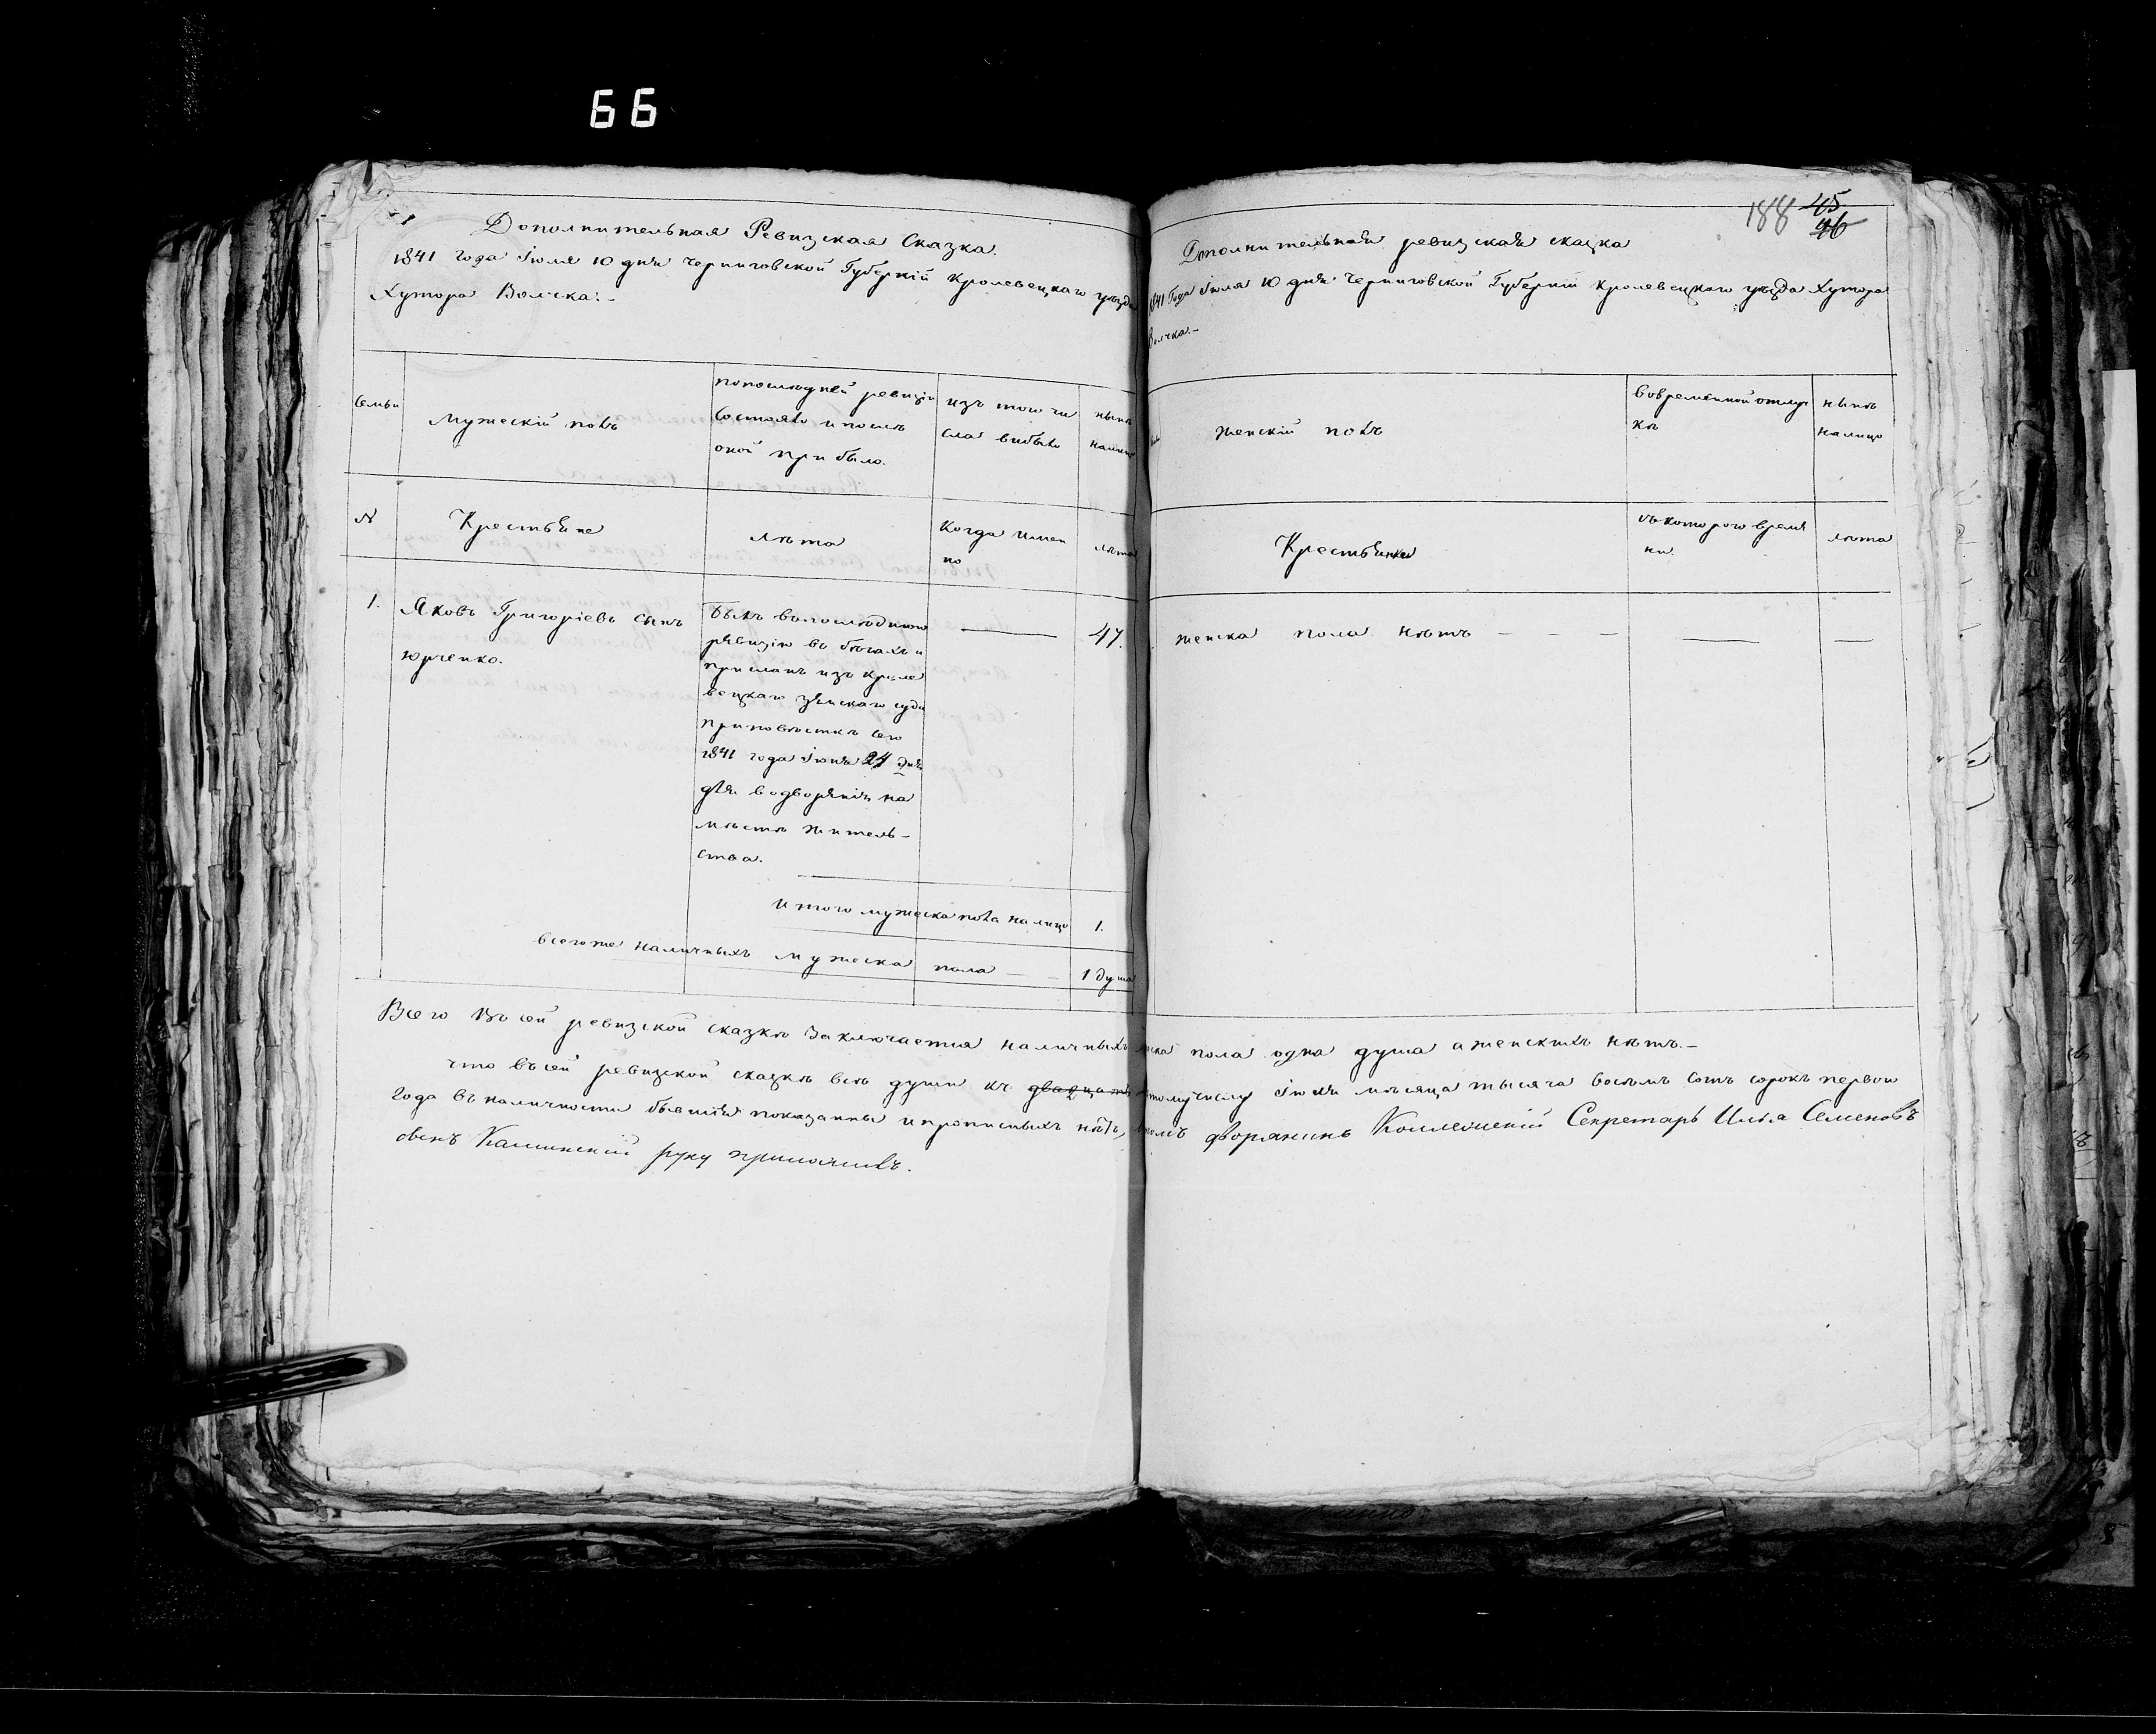 66
188 45
46
Дополнительная Ревизская Сказка.
1841 года Iюля 10 дня Черниговской Губернiй Кролевецкаго уезда
Хутора Волчка.-
Семьи
Мужескiй полъ
попоследней ревизiи
состояло и после
оной прибыло.
изъ того чи
сла выбыло
ныне
налицо
№
Крестьяне
лета
Когда Имен
но
лета
1.
Яковъ Григорiевъ сынъ
Юрченко.
былъ вопоследнюю
ревизiю въ бегахъ и
присланъ изъ кроле
вецкаго земскаго суда
приповестке сего
1841 года Iюня 24 дня
для водворенiя на
месте житель-
ства.
47.
Итого мужеска пола налицо 1.
всегоже наличныхъ мужеска пола - - 1 душа
Дополнительная ревизская сказка
1841 Года Iюля 10 дня Черниговской Губернiй Кролевецкаго уезда Хутора
Волчка.-
Женскiй полъ
вовременной отлуч
ке
ныне
налицо
Крестьянки
съкотораго время
ни
лета
женска пола нетъ - - -
Всего Въ сей ревизской сказке Заключается наличныхъ пола одна душа аженскихъ нетъ.-
что въсей ревизской сказке все души къ двадцать числу Iюня месяца тысяча восемъ сотъ сорокъ первого
Года въ наличности бывшiя показанны ипрописныхъ нетъ, дворянинъ Коллежскiй Секретарь Илья Семеновъ
сынъ Кашинскiй руку приложилъ.